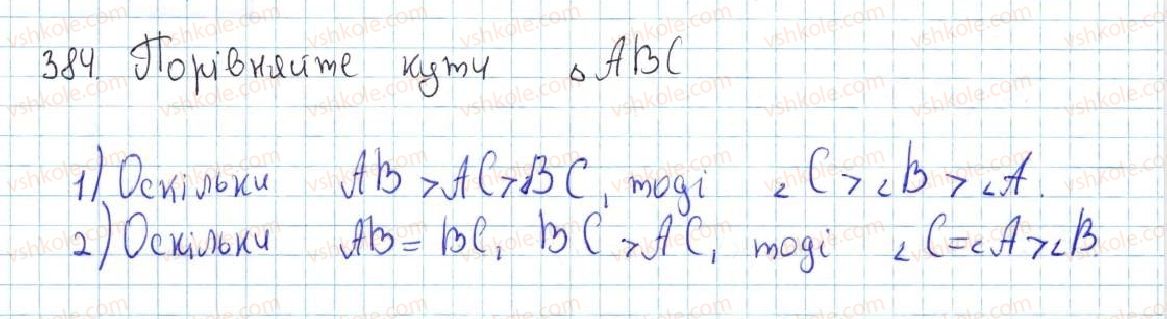 384. Порівняйте кути △ABC
1) Оскільки AB > AC > BC, тоді ∠C > ∠B > ∠A.
2) Оскільки AB = BC, BC > AC, тоді ∠C = ∠A > ∠B.